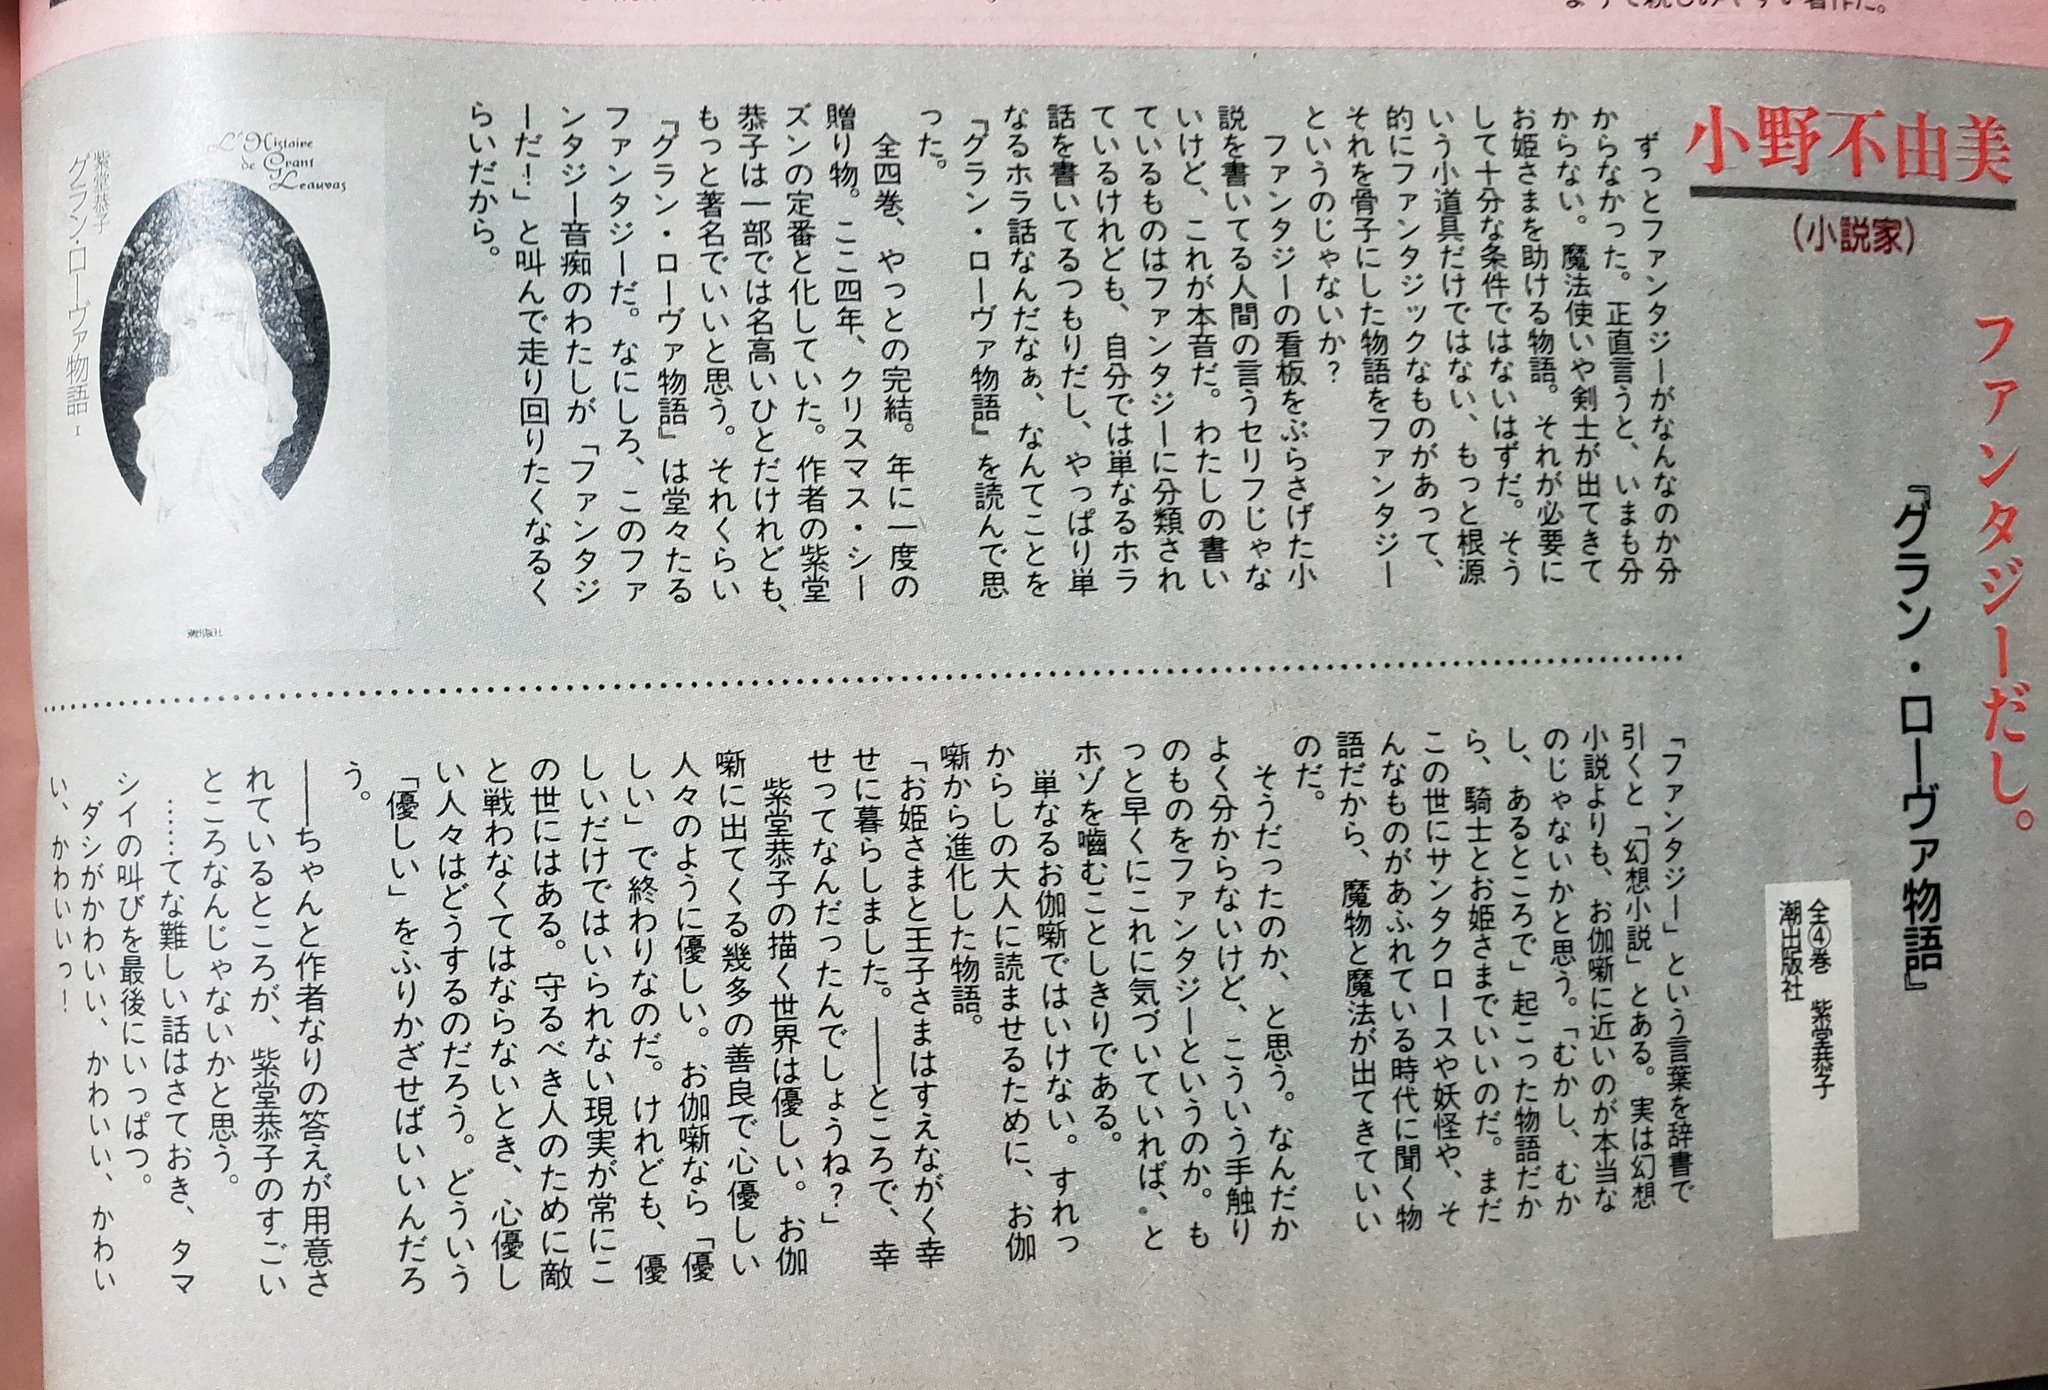 ようで親しみやすい著作だ。
小野不由美
(小説家)
ファンタジーだし。
『グラン・ローヴァ物語』
全④巻 紫堂恭子
潮出版社
ずっとファンタジーがなんなのか分
からなかった。正直言うと、いまも分
からない。魔法使いや剣士が出てきて
お姫さまを助ける物語。それが必要に
して十分な条件ではないはずだ。そう
いう小道具だけではない、もっと根源
的にファンタジックなものがあって、
それを骨子にした物語をファンタジー
というのじゃないか?
ファンタジーの看板をぶらさげた小
説を書いてる人間の言うセリフじゃな
いけど、これが本音だ。わたしの書い
ているものはファンタジーに分類され
ているけれども、自分では単なるホラ
話を書いてるつもりだし、やっぱり単
なるホラ話なんだなぁ、なんてことを
『グラン・ローヴァ物語』を読んで思
った。
全四巻、やっとの完結。年に一度の
贈り物。ここ四年、クリスマス・シー
ズンの定番と化していた。作者の紫堂
恭子は一部では名高いひとだけれども、
もっと著名でいいと思う。それくらい
『グラン・ローヴァ物語』は堂々たる
ファンタジーだ。なにしろ、このファ
ンタジー音痴のわたしが「ファンタジ
ーだ!」と叫んで走り回りたくなるく
らいだから。
L'Histoire
de Grant
Leauvas
紫堂恭子
グラン・ローヴァ物語 I
潮出版社
「ファンタジー」という言葉を辞書で
引くと「幻想小説」とある。実は幻想
小説よりも、お伽噺に近いのが本当な
のじゃないかと思う。「むかし、むか
し、あるところで」起こった物語だか
ら、騎士とお姫さまでいいのだ。まだ
この世にサンタクロースや妖怪や、そ
んなものがあふれている時代に聞く物
語だから、魔物と魔法が出てきていい
のだ。
そうだったのか、と思う。なんだか
よく分からないけど、こういう手触り
のものをファンタジーというのか。も
っと早くにこれに気づいていれば、と
ホゾを嚙むことしきりである。
単なるお伽噺ではいけない。すれっ
からしの大人に読ませるために、お伽
噺から進化した物語。
「お姫さまと王子さまはすえながく幸
せに暮らしました。――ところで、幸
せってなんだったんでしょうね?」
紫堂恭子の描く世界は優しい。お伽
噺に出てくる幾多の善良で心優しい
人々のように優しい。お伽噺なら「優
しい」で終わりなのだ。けれども、優
しいだけではいられない現実が常にこ
の世にはある。守るべき人のために敵
と戦わなくてはならないとき、心優し
い人々はどうするのだろう。どういう
「優しい」をふりかざせばいいんだろ
う。
――ちゃんと作者なりの答えが用意さ
れているところが、紫堂恭子のすごい
ところなんじゃないかと思う。
……てな難しい話はさておき、タマ
シイの叫びを最後にいっぱつ。
ダシがかわいい、かわいい、かわい
い、かわいいっ!